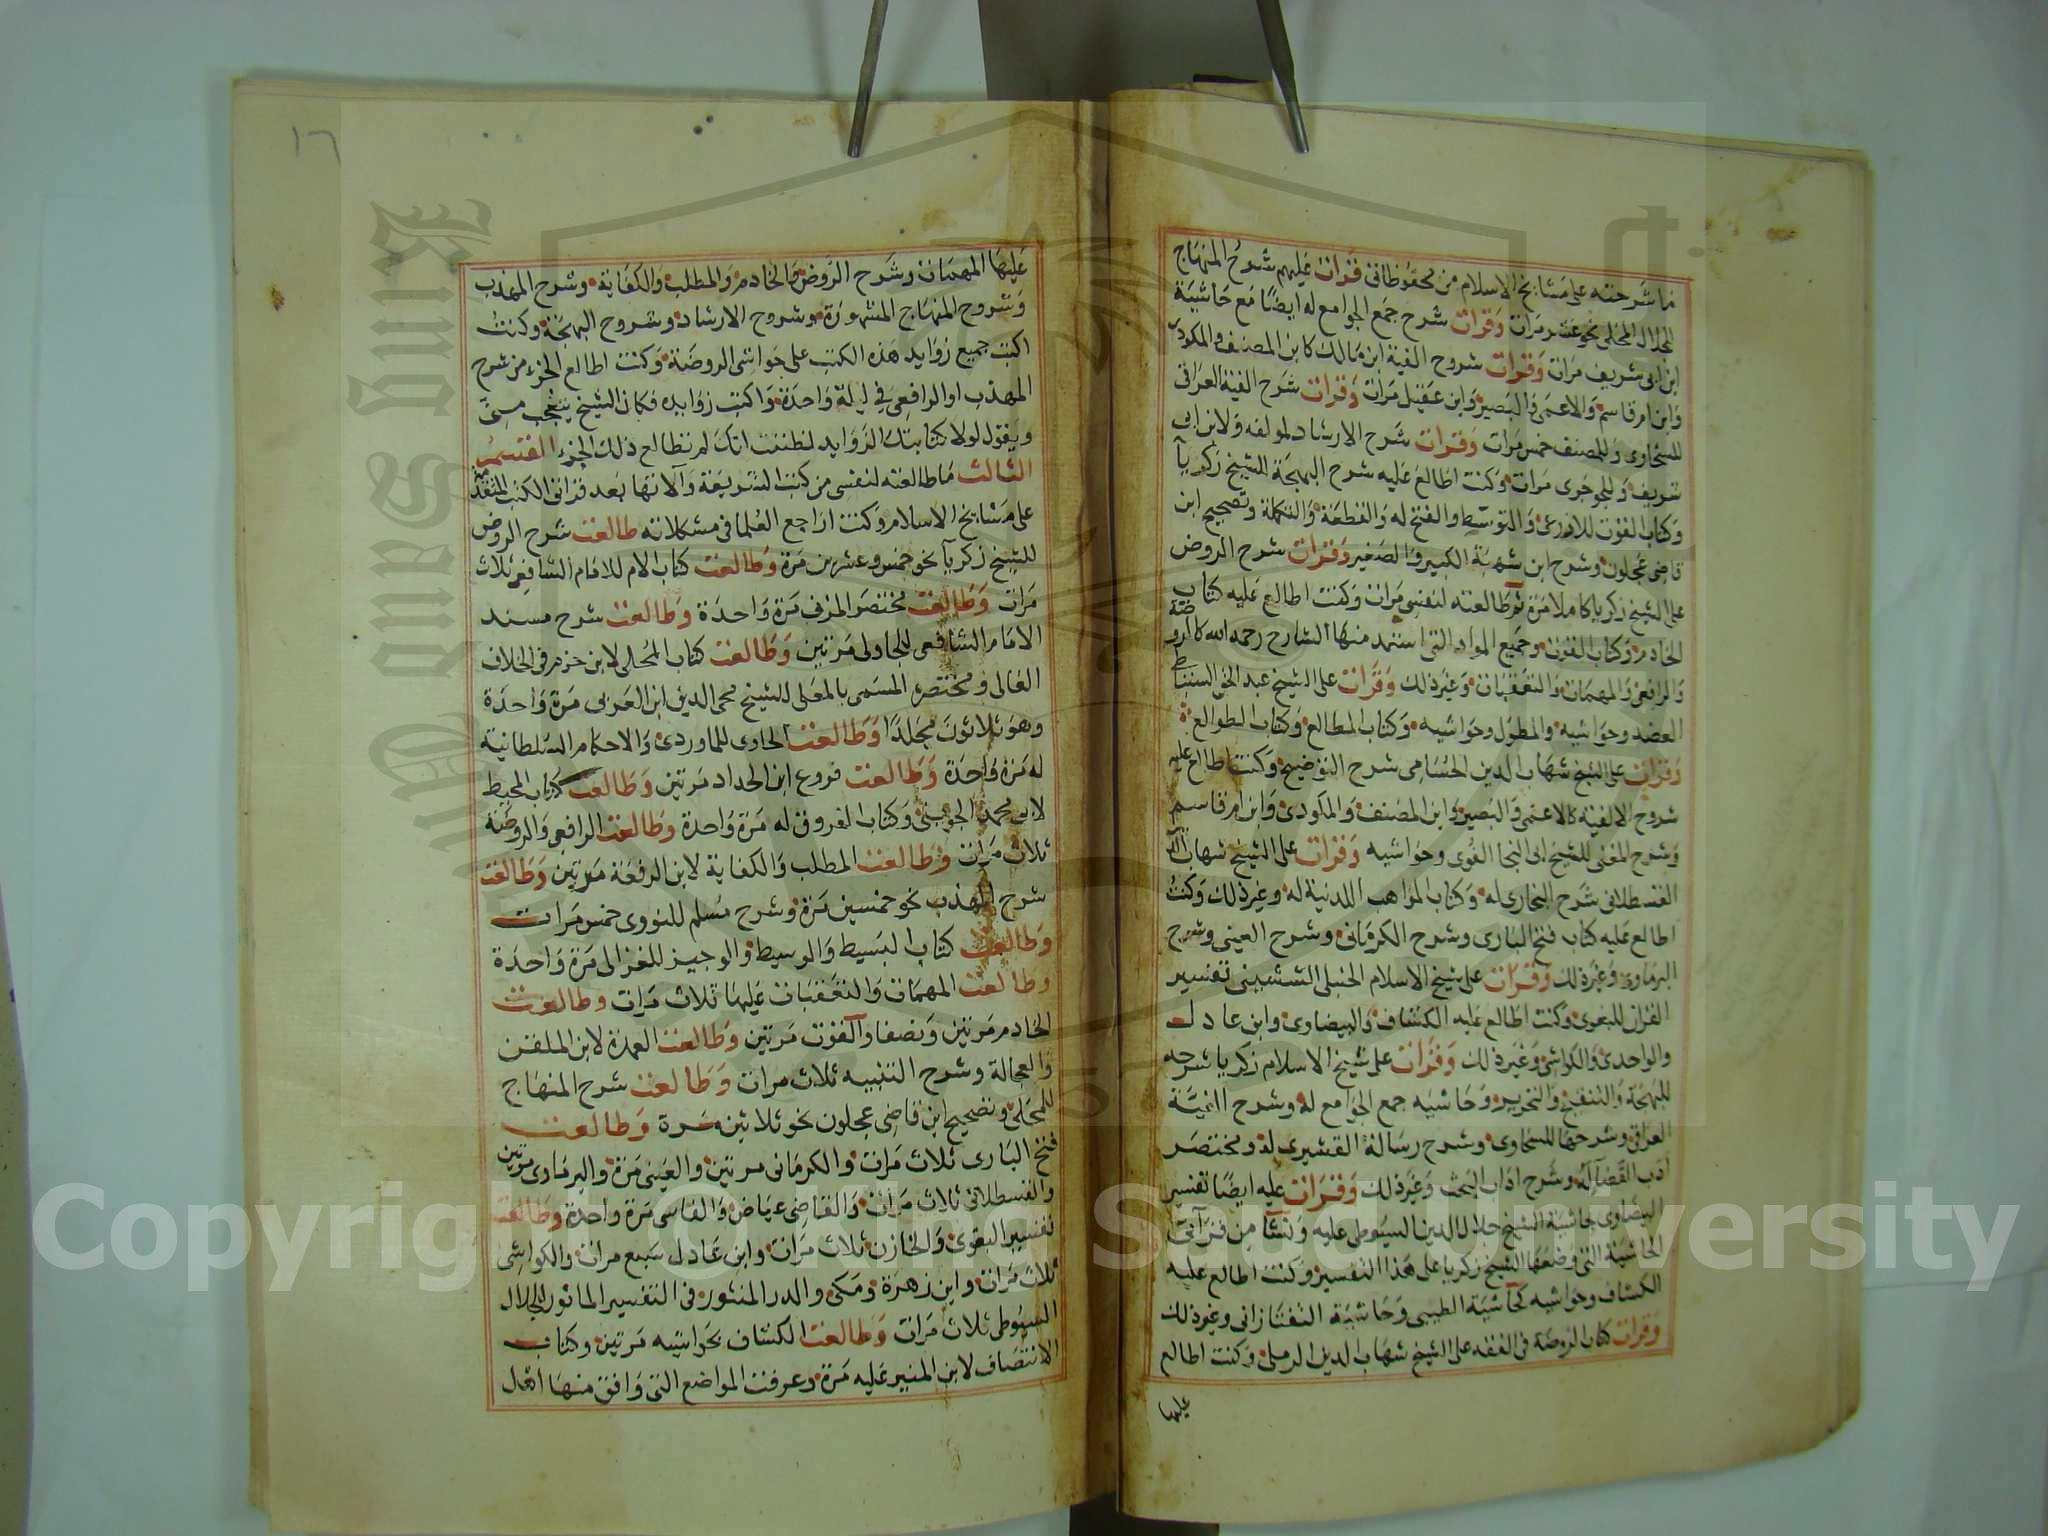 ما شرحته على مشايخ الاسلام من محفوظاتى قرات عليهم شرح المنهاج
للجلال المحلى نحو عشر مرات وقرات شرح جمع الجوامع له ايضا مع حاشية
ابن ابى شريف مرات وقرات شروح الفية ابن مالك كابن المصنف والمكودى
وابن ام قاسم والاعمى والبصير وابن عقيل مرات وقرات شرح الفية العراقى
للسخاوى وللمصنف خمس مرات وقرات شرح الارشاد لمولفه ولابن ابى
شريف وللجوجرى مرات وكنت اطالع عليه شرح البهجة للشيخ زكريا
وكتاب القوت للاذرعى والتوسط والفتح له والقطعة والتكملة وتصحيح ابن
قاضى عجلون وشرح ابن شهبة الكبير والصغير وقرات شرح الروض
على الشيخ زكريا كاملا مرة ثم طالعته لنفسى مرات وكنت اطالع عليه كتاب
الخادم وكتاب القوت وجميع المواد التى استمد منها الشارح رحمه الله كالروضة
والرافعى والمهمات والتعقبات وغير ذلك وقرات على الشيخ عبد الحق السنباطى
العضد وحواشيه والمطول وحواشيه وكتاب المطالع وكتاب الطوالع
وقرات على الشيخ شهاب الدين الحسامى شرح التوضيح وكنت اطالع عليه
شروح الالفية كالاعمى والبصير وابن المصنف والمكودى وابن ام قاسم
وشرح المغنى للشيخ ابى النجا الفوى وحواشيه وقرات على الشيخ شهاب الدين
القسطلانى شرح البخارى له وكتاب المواهب اللدنية له وغير ذلك وكنت
اطالع عليه كتاب فتح البارى وشرح الكرمانى وشرح العينى وشرح
البرماوى وغير ذلك وقرات على شيخ الاسلام الحنبلى الششينى تفسير
القران للبغوى وكنت اطالع عليه الكشاف والبيضاوى وابن عادل
والواحدى والكواشى وغير ذلك وقرات على شيخ الاسلام زكريا شرحه
للبهجة والتنقيح والتحرير وحاشيه جمع الجوامع له وشرح الفية
العراقى وشرحها للسخاوى وشرح رسالة القشيرى له ومختصر
ادب القضا له وشرح اداب البحث وغير ذلك وقرات عليه ايضا تفسير
البيضاوى بحاشية الشيخ جلال الدين السيوطى عليه ونشا من قرآتى
الحاشية التى وضعها الشيخ زكريا على هذا التفسير وكنت اطالع عليه
الكشاف وحواشيه كحاشية الطيبى وحاشية التفتازانى وغير ذلك
وقرات كتاب الروضة فى الفقه على الشيخ شهاب الدين الرملى وكنت اطالع
عليها
١٦
عليها المهمات وشرح الروض والخادم والمطلب والكفاية وشرح المهذب
وشروح المنهاج المشهورة وشروح الارشاد وشروح البهجة وكنت
اكتب جميع زوايد هذه الكتب على حواشى الروضة وكنت اطالع الجزء من شرح
المهذب او الرافعى فى ليلة واحدة واكتب زوايده فكان الشيخ يتعجب منى
ويقول لولا كتابتك الزوايد لظننت انك لم تطالع ذلك الجزء القسم
الثالث ما طالعته لنفسى من كتب الشريعة وآلاتها بعد قراتى الكتب المتقدمة
على مشايخ الاسلام وكنت اراجع العلما فى مشكلاته طالعت شرح الروض
للشيخ زكريا نحو خمس وعشرين مرة وطالعت كتاب الام للامام الشافعى ثلاث
مرات وطالعت مختصر المزنى مرة واحدة وطالعت شرح مسند
الامام الشافعى للجاولى مرتين وطالعت كتاب المحلى لابن حزم فى الخلاف
العالى ومختصره المسمى بالمعلى للشيخ محى الدين ابن العربى مرة واحدة
وهو ثلاثون مجلدا وطالعت الحاوى للماوردى والاحكام السلطانية
له مرة واحدة وطالعت فروع ابن الحداد مرتين وطالعت كتاب المحيط
لابى محمد الجوينى وكتاب الفروق له مرة واحدة وطالعت الرافعى والروضة
ثلاث مرات وطالعت المطلب والكفاية لابن الرفعة مرتين وطالعت
شرح المهذب نحو خمسين مرة وشرح مسلم للنووى خمس مرات
وطالعت كتاب البسيط والوسيط والوجيز للغزالى مرة واحدة
وطالعت المهمات والتعقبات عليها ثلاث مرات وطالعت
الخادم مرتين ونصفا والقوت مرتين وطالعت العمدة لابن الملقن
والعجالة وشرح التنبيه ثلاث مرات وطالعت شرح المنهاج
للمحلى وتصحيح ابن قاضى عجلون نحو ثلاثين مرة وطالعت
فتح البارى ثلاث مرات والكرمانى مرتين والعينى مرة والبرماوى مرتين
والقسطلانى ثلاث مرات والقاضى عياض والفاسى مرة واحدة وطالعت
تفسير البغوى والخازن ثلاث مرات وابن عادل سبع مرات والكواشى
ثلاث مرات وابن زهرة ومكى والدر المنثور فى التفسير الماثور للجلال
السيوطى ثلاث مرات وطالعت الكشاف بحواشيه مرتين وكتاب
الانتصاف لابن المنير عليه مرة وعرفت المواضع التى وافق منها اهل
Copyright © King Saud University
King Saud University